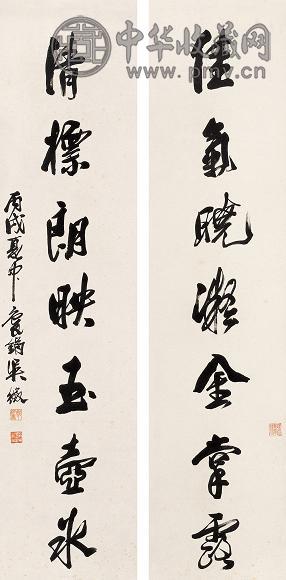 中华收藏网
www.pmv.cn
佳氣曉凝金掌露
清標朗映玉壺冰
丙戌夏中袌鋗吳徵